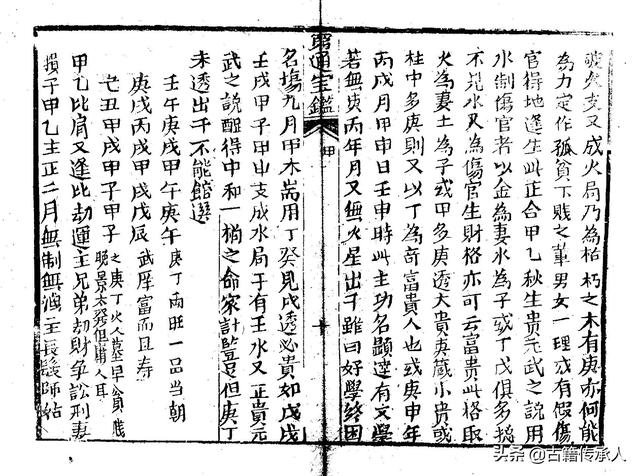 破矣支又成火局乃為枯朽之木有庚亦何能
為力定作孤貧下賤之輩男女一理或有假傷
官得地逢生此正合甲乙秋生貴元武之說用
水制傷官者以金為妻水為子或丁戊俱多捴
不見水又為傷官生財格亦可云富貴此格取
火為妻土為子或甲多庚透大貴庚藏小貴或
柱中多庚則又以丁為奇富貴人也或庚申年
丙戌月甲申日壬申時此主功名顯達有文學
若無庚丙年月又無火星出干雖曰好學終困
窮通宝鑑
甲
十
名塲九月甲木耑用丁癸見戊透必貴如戊戌
壬戌甲子甲申支成水局干有壬水又正貴元
武之說醒得中和一猶之命家計豈但庚丁
未透出干不能舘選
壬午庚戌甲午庚午 庚丁兩旺一品當朝
庚戌丙戌甲戌戊辰 武厚富而且寿
丑甲戌甲子甲子 庚丁火人早貧賤
發但庸人耳
甲乙比肩又逢比劫運主兄弟劫財爭訟刑妻
損子甲乙主正二月無制無洩主長髮師姑
头条@古籍传承人